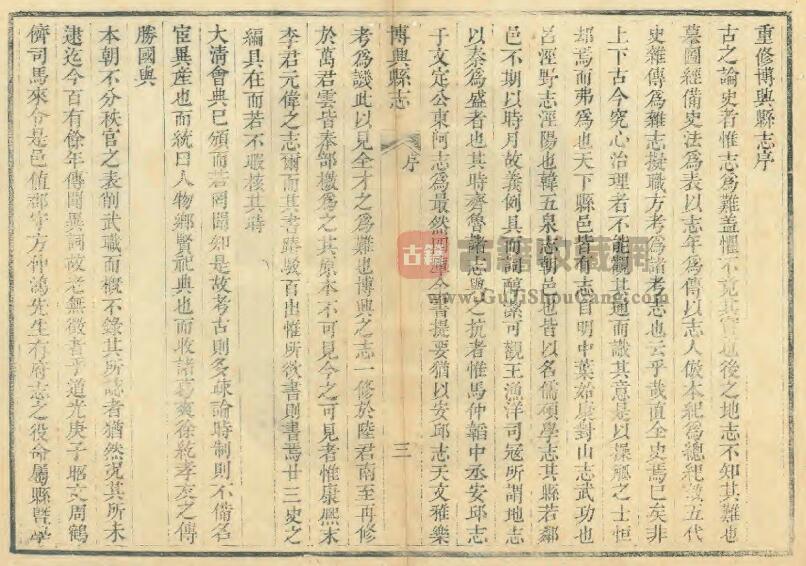 重修博興縣志序
古之論史者惟志為難蓋懼不克其實也後之地志不知其難也
墓圖經備史法為表以志年為傳以志人倣本紀為總紀援五代
史雜傳為雜志擬職方考為諸考志也云乎哉直全史焉已矣非
上下古今究心治理者不能觀其通而識其意是以操觚之士恒
却焉而弗為也天下縣邑皆有志自明中葉始康對山志武功也
呂涇野志涇陽也韓五泉志朝邑也皆以名儒碩學志其縣若鄰
邑不期以時月故義例具而詞醇潔可觀王漁洋司寇所謂地志
以秦為盛者也其時齊魯諸志與之抗者惟馬仲韜中丞安邱志
于文定公東阿志為最然四庫全書提要猶以安邱志天文雅樂
博興縣志
序
三
考為譏此以見全才之為難也博興之志一修於陸君南至再修
於萬君雲皆奉部檄為之其原本不可見今之可見者惟康熙末
李君元偉之志爾而其書踳駁百出惟所欲書則書焉廿三史之
編具在而若不暇核其時
大清會典已頒而若罔聞知是故考古則多疎論時制則不備名
宦異產也而統曰人物鄉賢祀典也而收諸葛爽徐紇孝友之傳
勝國與
本朝不分秩官之表削武職而概不錄其所誌者猶然況其所未
逮迄今百有餘年傳聞異詞故老無徵者乎道光庚子昭文周鶴
儕司馬來令是邑值郡守方仲鴻先生有府志之役命屬縣暨學
古籍
古籍收藏网
www.GuJiShouCang.com